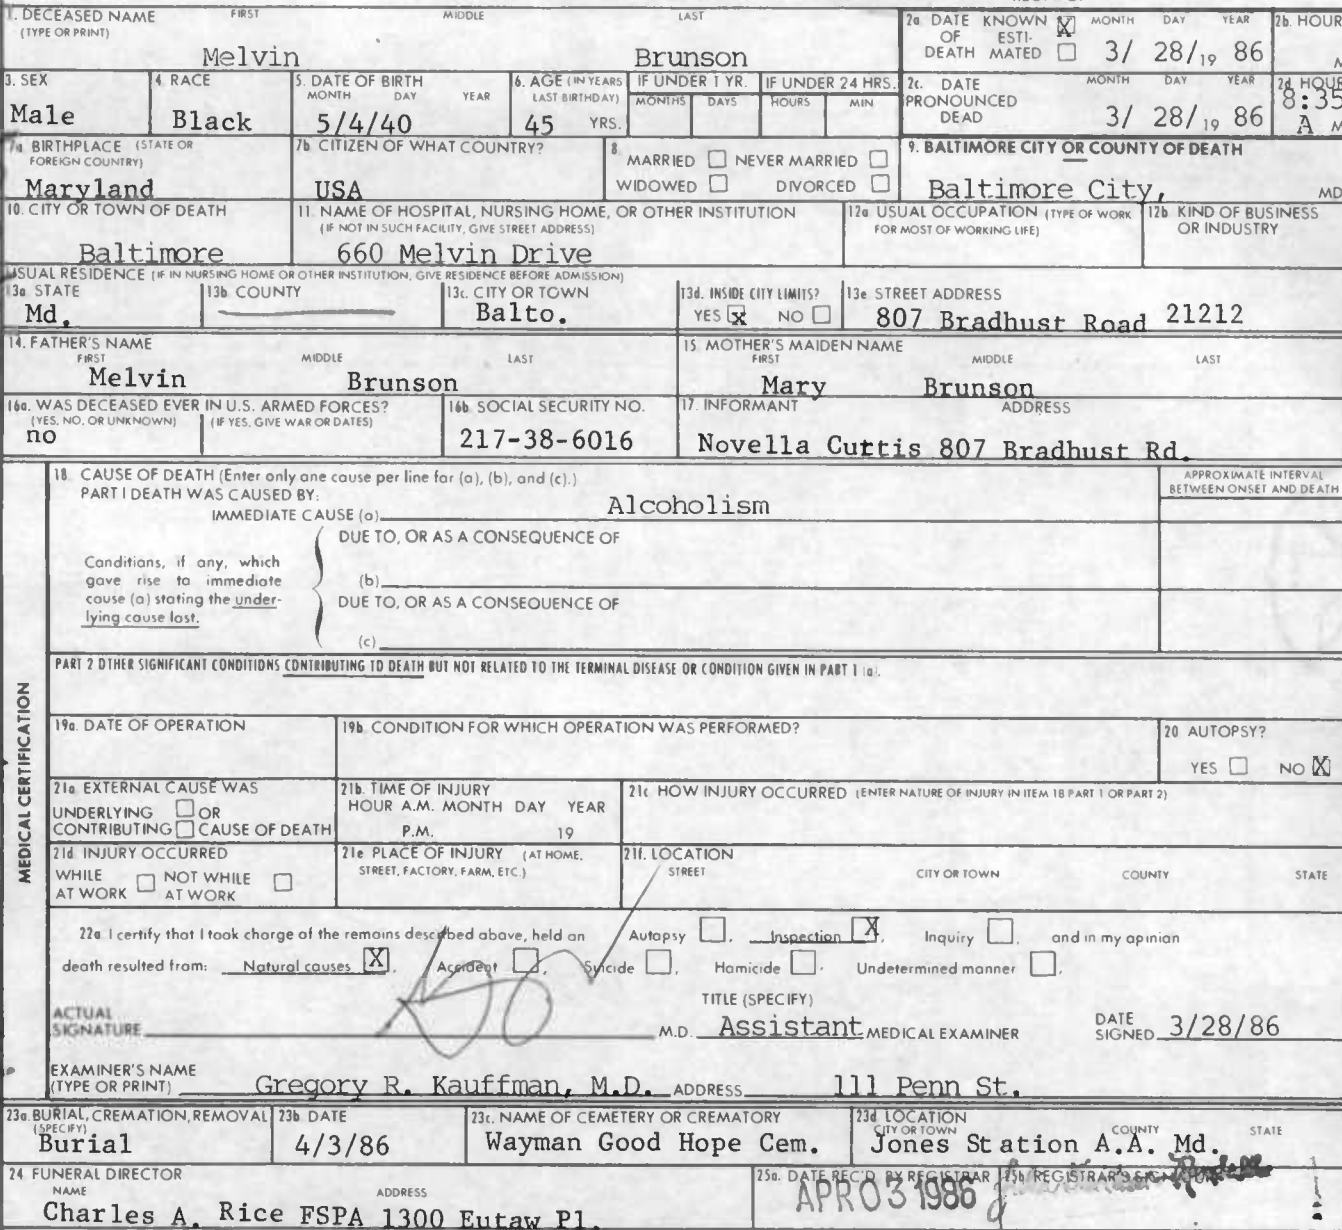 1. DECEASED NAME FIRST MIDDLE LAST
(TYPE OR PRINT)
Melvin Brunson
2a DATE KNOWN X MONTH DAY YEAR
OF ESTI-
DEATH MATED 3/ 28/19 86
2b. HOUR
M
3. SEX
Male
4. RACE
Black
5. DATE OF BIRTH
MONTH DAY YEAR
5/4/40
6. AGE (IN YEARS
LAST BIRTHDAY)
45 YRS.
IF UNDER 1 YR.
MONTHS DAYS
IF UNDER 24 HRS.
HOURS MIN
2c. DATE MONTH DAY YEAR
PRONOUNCED
DEAD 3/ 28/19 86
2d HOUR
8:35
A M
7a BIRTHPLACE (STATE OR
FOREIGN COUNTRY)
Maryland
7b CITIZEN OF WHAT COUNTRY?
USA
8
MARRIED NEVER MARRIED
WIDOWED DIVORCED
9. BALTIMORE CITY OR COUNTY OF DEATH
Baltimore City, MD
10. CITY OR TOWN OF DEATH
Baltimore
11. NAME OF HOSPITAL, NURSING HOME, OR OTHER INSTITUTION
(IF NOT IN SUCH FACILITY, GIVE STREET ADDRESS)
660 Melvin Drive
12a USUAL OCCUPATION (TYPE OF WORK
FOR MOST OF WORKING LIFE)
12b KIND OF BUSINESS
OR INDUSTRY
USUAL RESIDENCE (IF IN NURSING HOME OR OTHER INSTITUTION, GIVE RESIDENCE BEFORE ADMISSION)
13a STATE
Md.
13b COUNTY
13c. CITY OR TOWN
Balto.
13d. INSIDE CITY LIMITS?
YES x NO
13e STREET ADDRESS
807 Bradhust Road 21212
14. FATHER'S NAME
FIRST MIDDLE LAST
Melvin Brunson
15 MOTHER'S MAIDEN NAME
FIRST MIDDLE LAST
Mary Brunson
16a. WAS DECEASED EVER IN U.S. ARMED FORCES?
(YES, NO, OR UNKNOWN) (IF YES, GIVE WAR OR DATES)
no
16b SOCIAL SECURITY NO.
217-38-6016
17. INFORMANT ADDRESS
Novella Cuttis 807 Bradhust Rd.
MEDICAL CERTIFICATION
18. CAUSE OF DEATH (Enter only one cause per line for (a), (b), and (c).)
PART I DEATH WAS CAUSED BY:
IMMEDIATE CAUSE (a) Alcoholism
APPROXIMATE INTERVAL
BETWEEN ONSET AND DEATH
DUE TO, OR AS A CONSEQUENCE OF
Conditions, if any, which
gave rise to immediate
cause (a) stating the under-
lying cause last.
(b)
DUE TO, OR AS A CONSEQUENCE OF
(c)
PART 2 OTHER SIGNIFICANT CONDITIONS CONTRIBUTING TO DEATH BUT NOT RELATED TO THE TERMINAL DISEASE OR CONDITION GIVEN IN PART 1 (a).
19a. DATE OF OPERATION
19b. CONDITION FOR WHICH OPERATION WAS PERFORMED?
20 AUTOPSY?
YES NO X
21a EXTERNAL CAUSE WAS
UNDERLYING OR
CONTRIBUTING CAUSE OF DEATH
21b. TIME OF INJURY
HOUR A.M. MONTH DAY YEAR
P.M. 19
21c HOW INJURY OCCURRED (ENTER NATURE OF INJURY IN ITEM 18 PART 1 OR PART 2)
21d INJURY OCCURRED
WHILE NOT WHILE
AT WORK AT WORK
21e PLACE OF INJURY (AT HOME,
STREET, FACTORY, FARM, ETC.)
21f. LOCATION
STREET CITY OR TOWN COUNTY STATE
22a I certify that I took charge of the remains described above, held an Autopsy , Inspection X , Inquiry , and in my opinion
death resulted from: Natural causes X , Accident , Suicide , Homicide , Undetermined manner .
ACTUAL
SIGNATURE M.D.
TITLE (SPECIFY)
Assistant MEDICAL EXAMINER
DATE
SIGNED 3/28/86
EXAMINER'S NAME
(TYPE OR PRINT) Gregory R. Kauffman, M.D. ADDRESS 111 Penn St.
23a. BURIAL, CREMATION, REMOVAL
(SPECIFY)
Burial
23b DATE
4/3/86
23c. NAME OF CEMETERY OR CREMATORY
Wayman Good Hope Cem.
23d LOCATION
CITY OR TOWN COUNTY STATE
Jones Station A.A. Md.
24 FUNERAL DIRECTOR
NAME ADDRESS
Charles A. Rice FSPA 1300 Eutaw Pl.
25a. DATE REC'D. BY REGISTRAR
APR 03 1986
25b REGISTRAR'S SIGNATURE